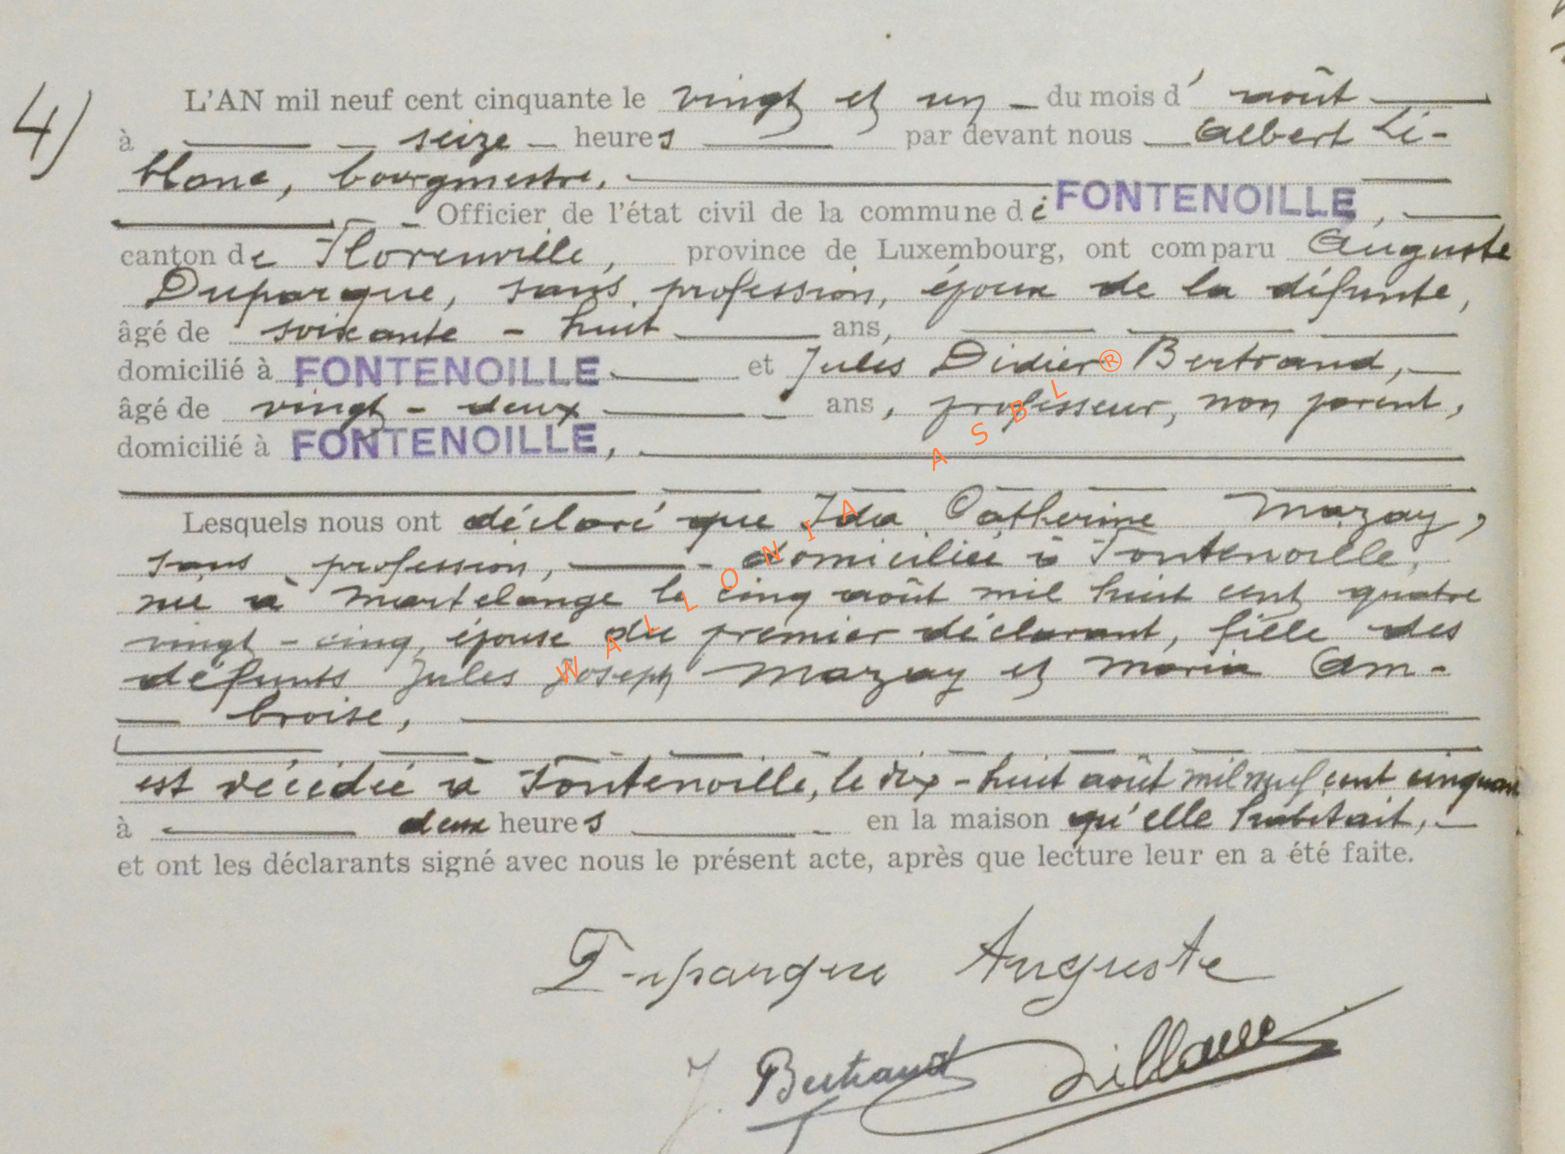 4)
L'AN mil neuf cent cinquante le vingt et un du mois d' août
à seize heures par devant nous Albert Li-
blanc, bourgmestre,
Officier de l'état civil de la commune de FONTENOILLE,
canton de Florenville, province de Luxembourg, ont comparu Auguste
Duparque, sans profession, époux de la défunte,
âgé de soixante-huit ans,
domicilié à FONTENOILLE et Jules Didier Bertrand,
âgé de vingt-deux ans, professeur, non parent,
domicilié à FONTENOILLE,
Lesquels nous ont déclaré que Ida Catherine Mazay,
sans profession, domiciliée à Fontenoille,
née à Martelange le cinq août mil huit cent quatre
vingt-cinq, épouse du premier déclarant, fille des
défunts Jules Joseph Mazay et Maria Am-
broise,
est décédée à Fontenoille, le dix-huit août mil neuf cent cinquante
à deux heures en la maison qu'elle habitait,
et ont les déclarants signé avec nous le présent acte, après que lecture leur en a été faite.
Duparque Auguste
J. Bertrand Liblanc
WALLONIA ASBL®